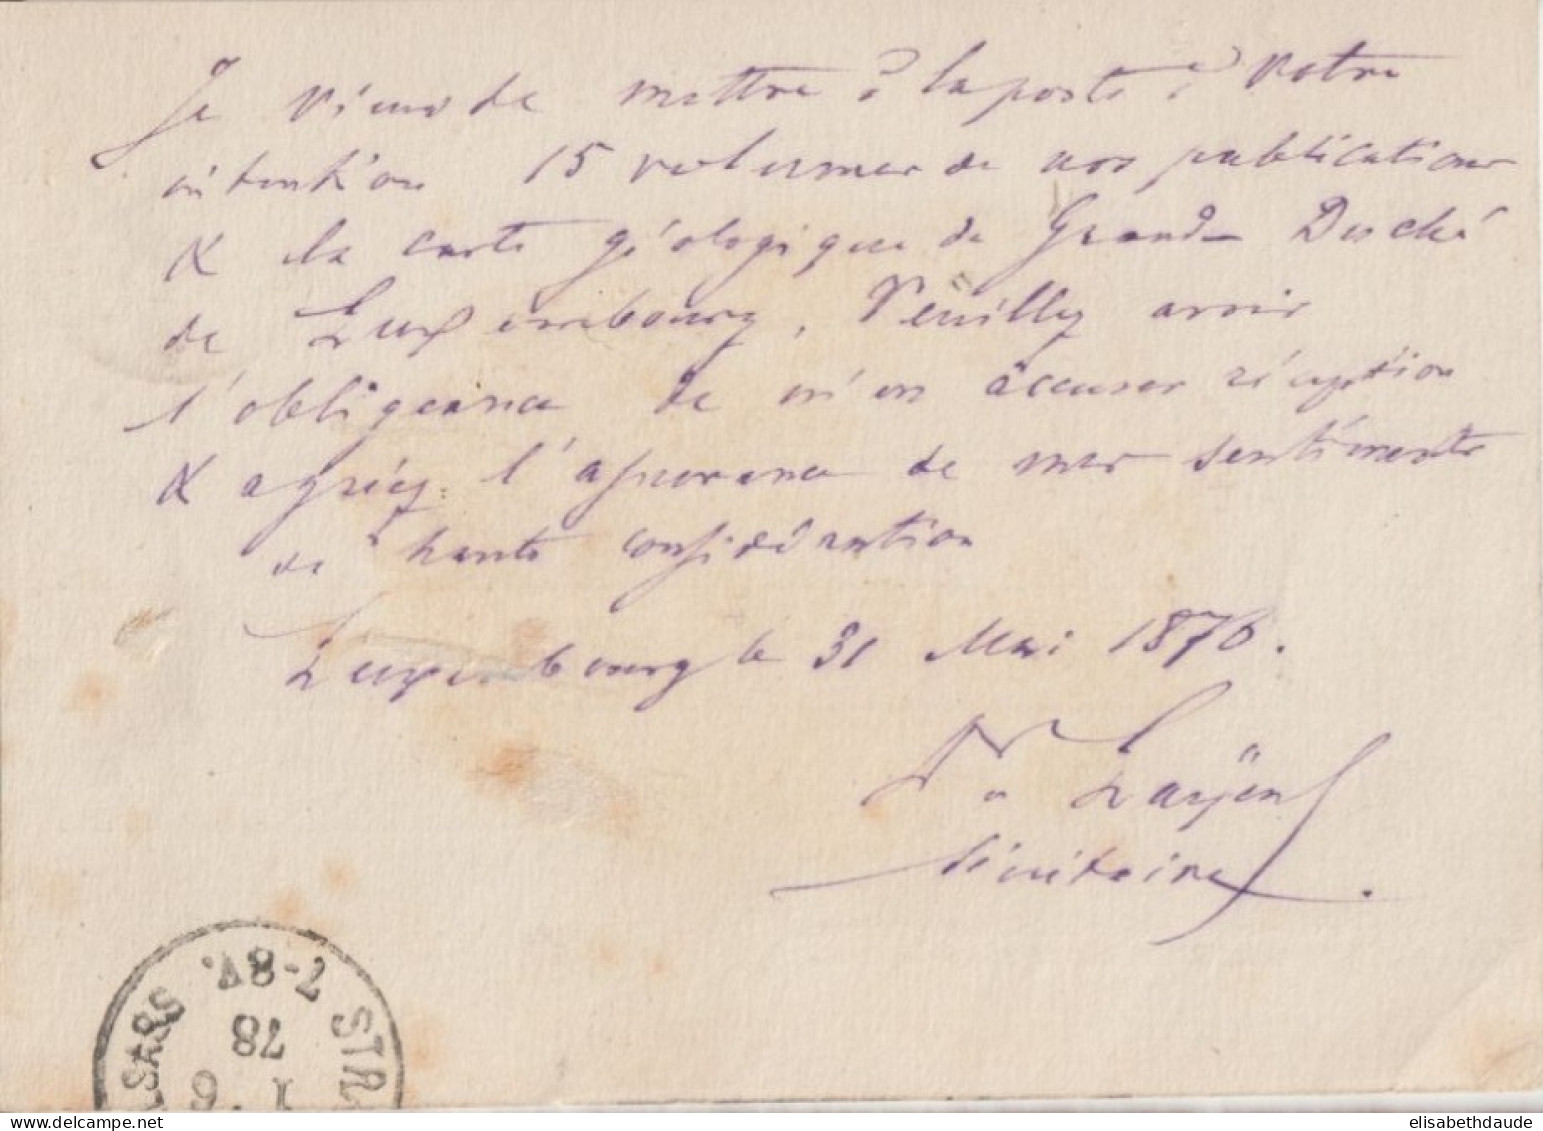 Je viens de mettre à la poste à votre
intention 15 volumes de nos publications
& la carte géologique du Grand-Duché
de Luxembourg, Veuillez avoir
l'obligeance de m'en accuser réception
& agréez l'assurance de mes sentiments
de haute considération
Luxembourg le 31 Mai 1878.
Secrétaire
STR ELSASS
7-8V.
78
1 6
elisabethdaude